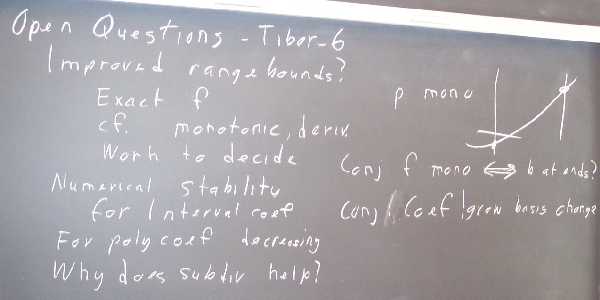 Open Questions - Tibor-6
Improved range bounds?
Exact f
cf. monotonic, deriv.
Work to decide
Numerical stability
for Interval coef
For poly coef decreasing
Why does subdiv help?
p mono
Conj f mono ⇔ b at ends?
Conj Coef grow basis change